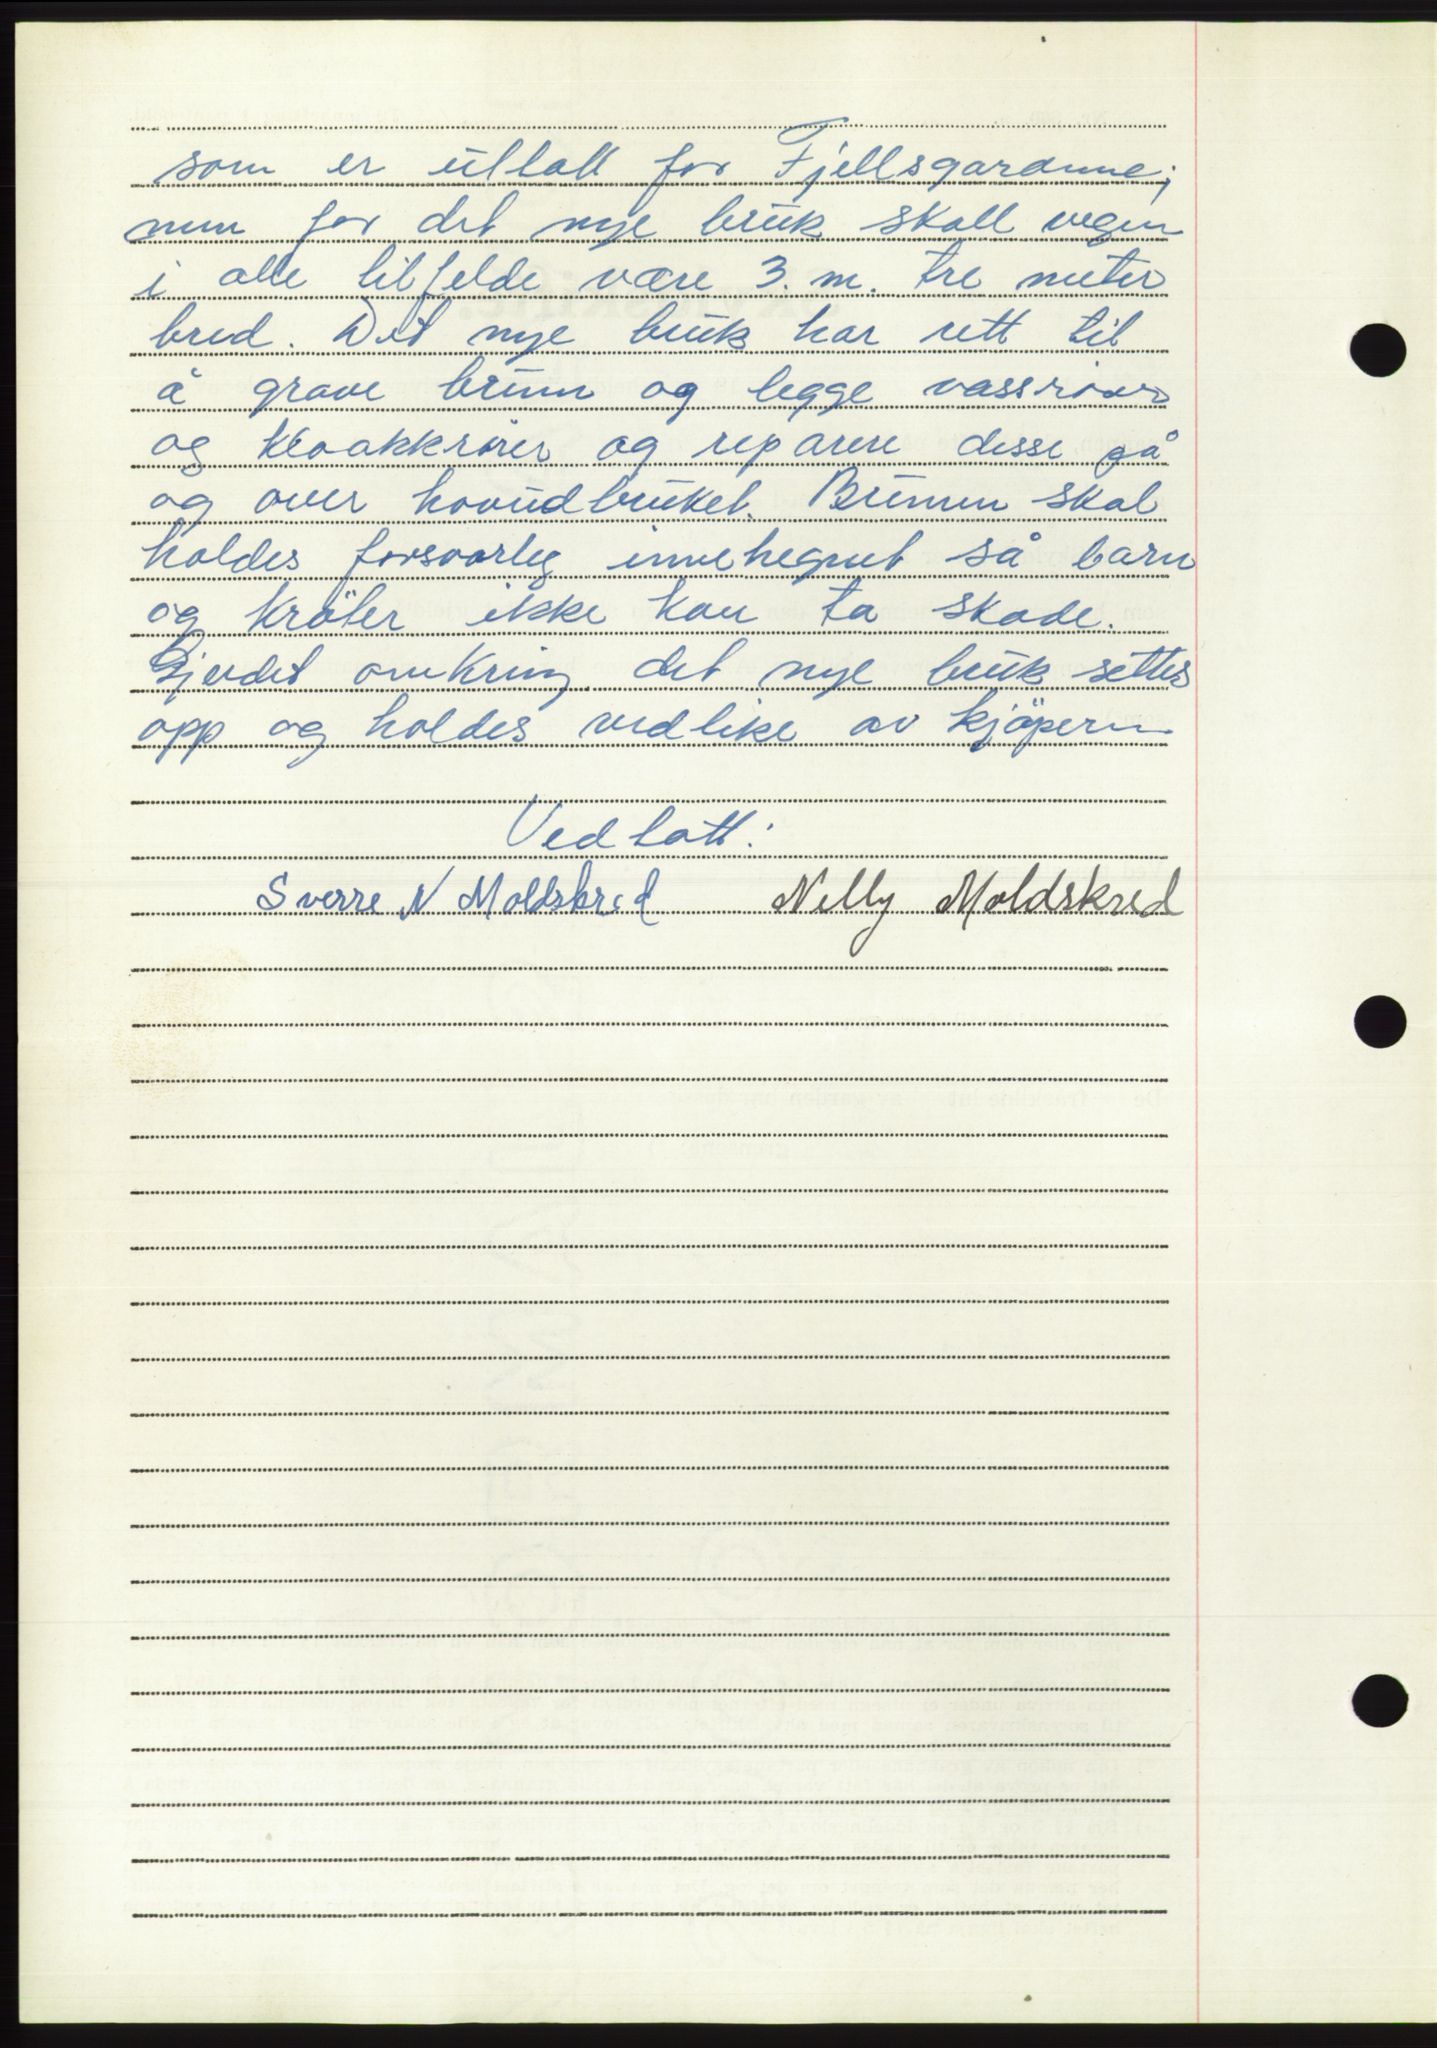 som er uttalt for Fjellsgardane;
men for det nye bruk skall vegen
i alle tilfelde være 3. m. tre meter
bred. Det nye bruk har rett til
å grave brunn og legge vassrører
og kloakkrører og reparere disse på
og over hovudbruket. Brunnen skal
holdes forsvarleg innehegnet så barn
og krøter ikke kan ta skade.
Gjerdet omkring det nye bruk settes
opp og holdes vedlike av kjöperen
Vedtatt:
Sverre N Moldskred Nelly Moldskred